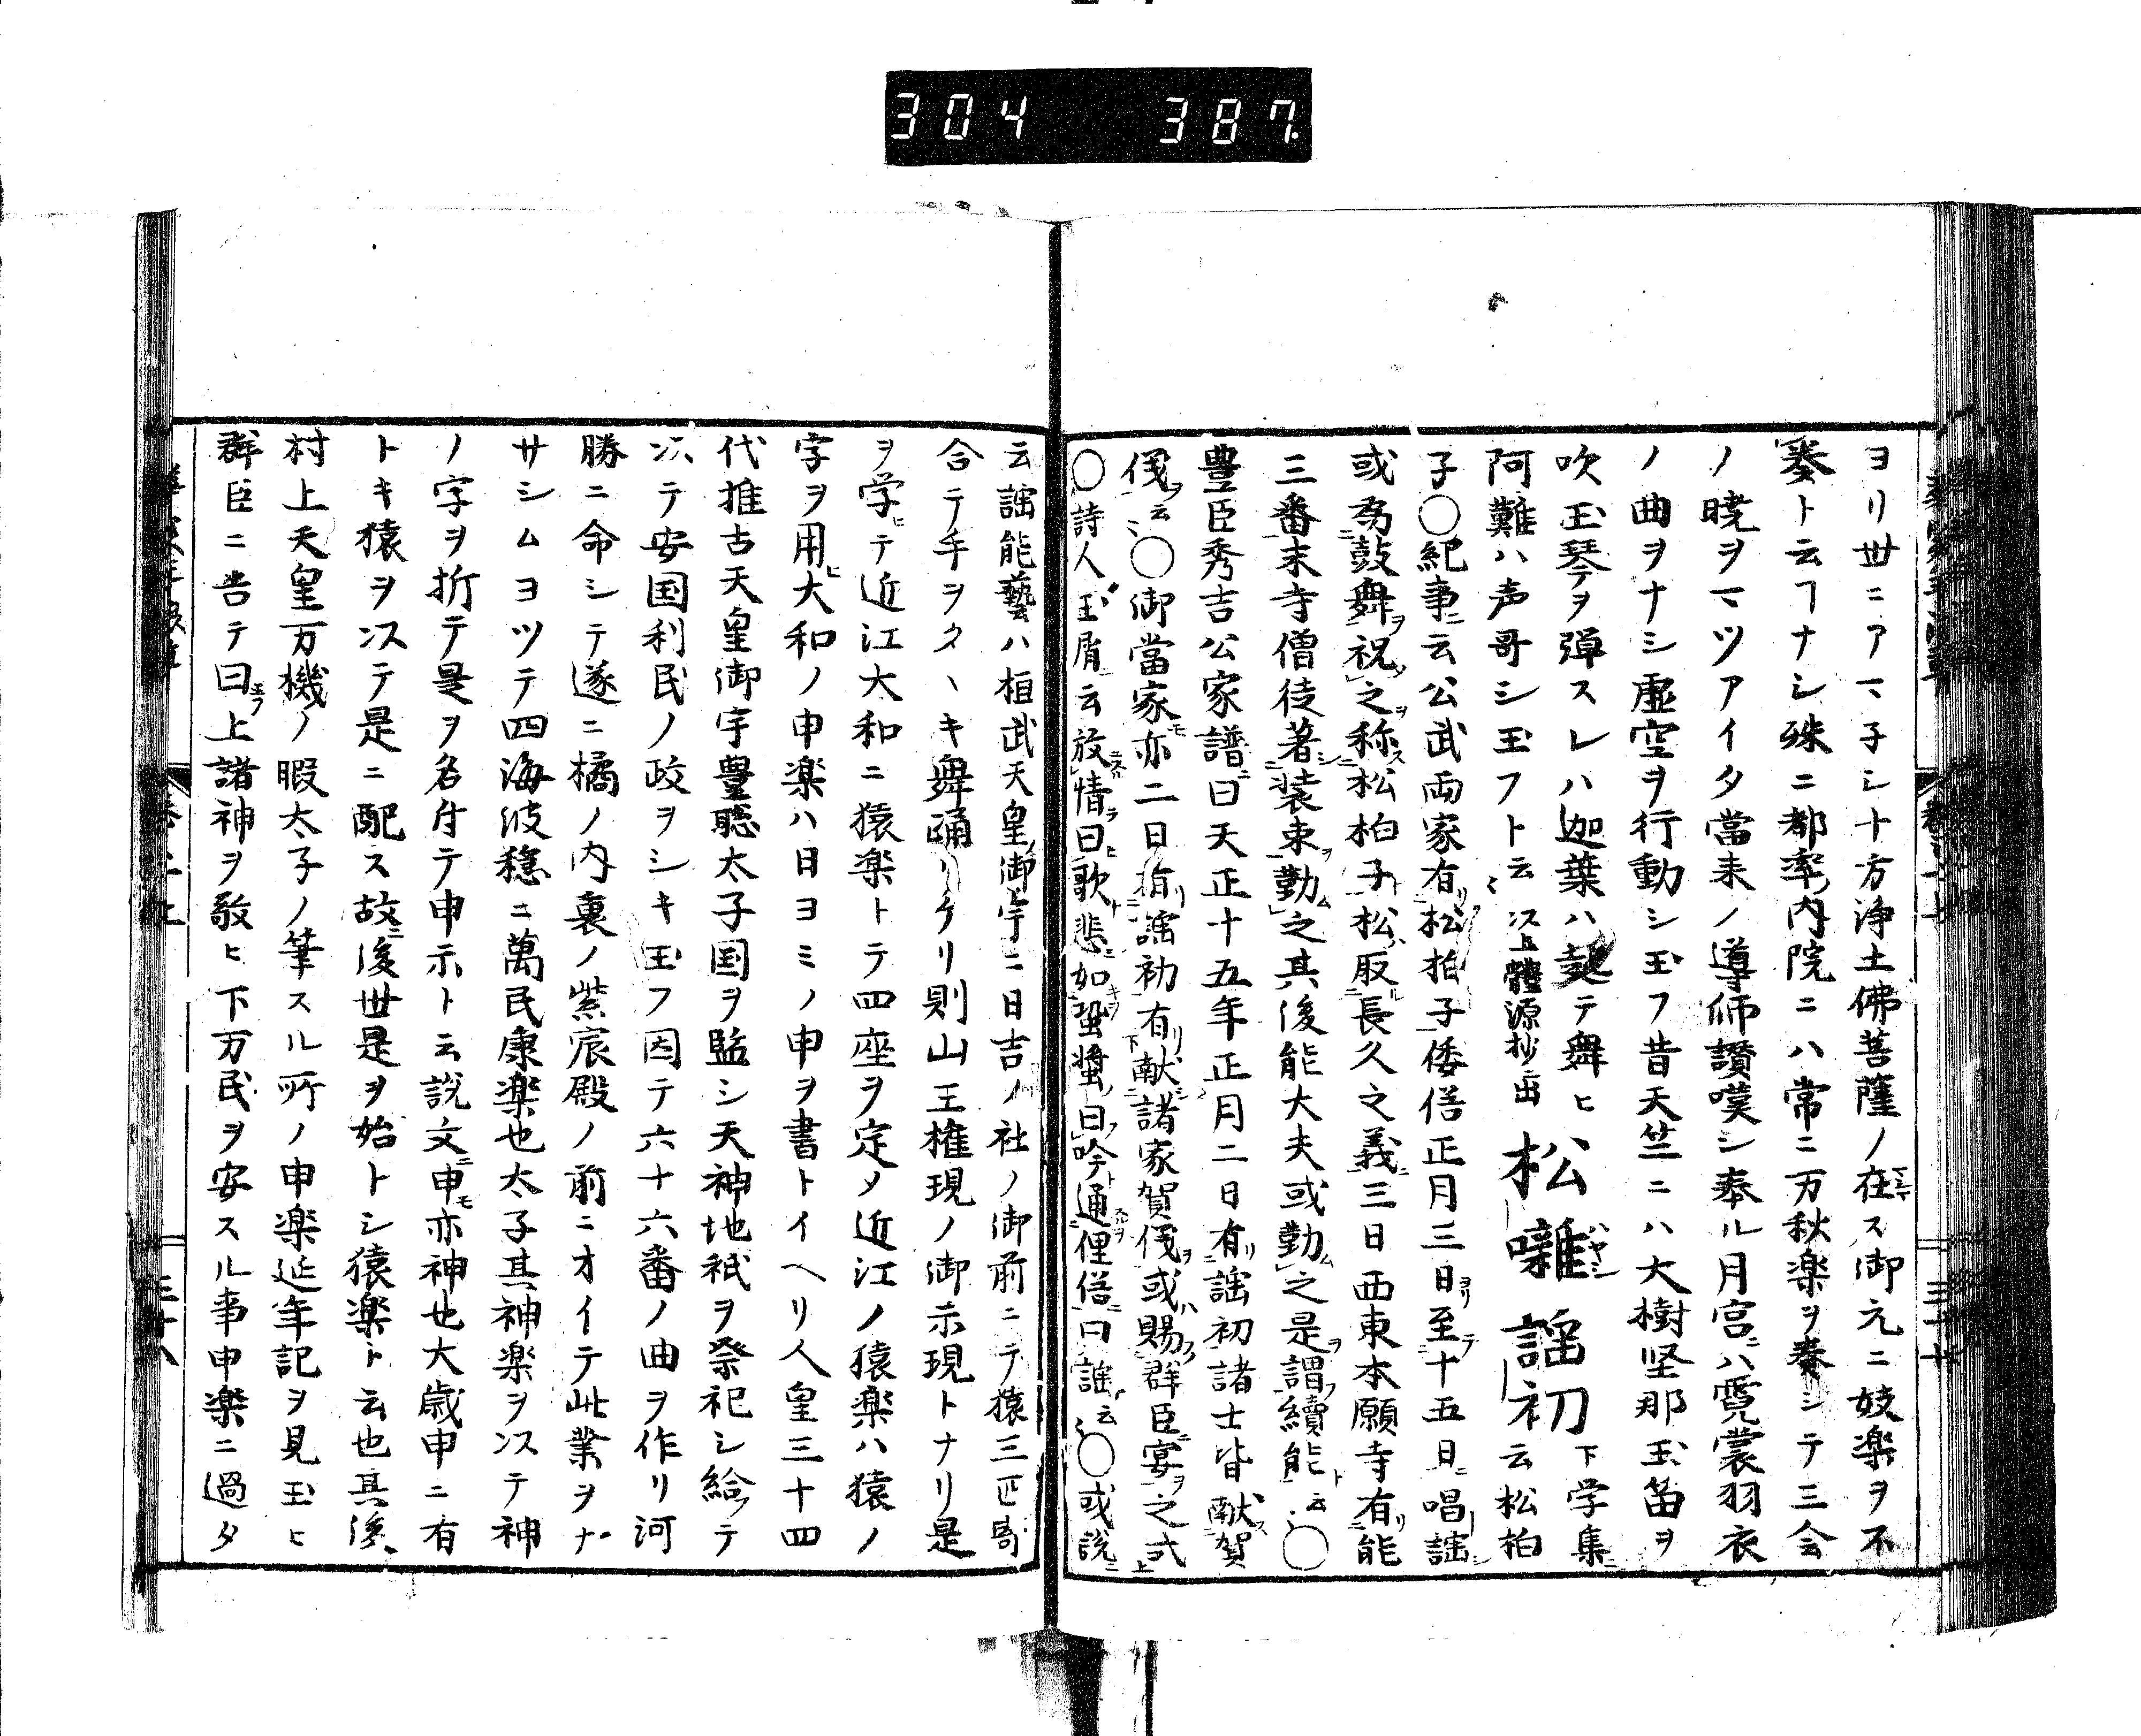 304 387
ヨリ世ニアマ子シ十方浄土佛菩薩ノ在ス御元ニ妓楽ヲ不
奏ト云フナシ殊ニ都率ノ内院ニハ常ニ万秋楽ヲ奏シテ三会
ノ暁ヲマツアイタ當来ノ導師讃嘆シ奉ル月宮ニハ霓裳羽衣
ノ曲ヲナシ虚空ヲ行動シ玉フ昔天竺ニハ大樹坚那玉笛ヲ
吹玉琴ヲ弾スレハ迦葉ハ起テ舞ヒ
阿難ハ声哥シ玉フト云々以上體源抄ニ出 松囃 謡初 下学集ニ云松拍
子○紀事ニ云公武両家有松拍子倭俗正月三日ヨリ至テ十五日唱謡
或為鼓舞祝之称松拍子松取長久之義三日西東本願寺有能
三番末寺僧徒著装束勤之其後能大夫或勤之是謂續能ト云々○
豊臣秀吉公家譜曰天正十五年正月二日有謡初諸士皆献賀
儀云々○御當家亦二日有謡初有献諸家賀儀或賜群臣宴之式
○詩人玉屑ニ云放情曰歌悲如蛩螿曰吟通俚俗曰謡云々○或説ニ
云謡能藝ハ桓武天皇ノ御宇ニ日吉ノ社ノ御前ニテ猿三匹寄
合テ手ヲタヽキ舞踊リケリ則山王権現ノ御示現トナリ是
ヲ学ヒテ近江大和ニ猿楽トテ四座ヲ定メ近江ノ猿楽ハ猿ノ
字ヲ用ヒ大和ノ申楽ハ日ヨミノ申ヲ書トイヘリ人皇三十四
代推古天皇御宇豊聡太子国ヲ監シ天神地祇ヲ祭祀シ給テ
以テ安国利民ノ政ヲシキ玉フ因テ六十六番ノ曲ヲ作リ河
勝ニ命シテ遂ニ橘ノ内裏ノ紫宸殿ノ前ニオイテ此業ヲナ
サシムヨツテ四海波穏ニ萬民康楽也太子其神楽ヲ以テ神
ノ字ヲ折テ是ヲ名付テ申示ト云説文ニ申モ亦神也大歳申ニ有
トキ猿ヲ以テ是ニ配ス故ニ後世是ヲ始トシ猿楽ト云也其後
村上天皇万機ノ暇太子ノ筆スル所ノ申楽延年記ヲ見玉ヒ
群臣ニ告テ曰上諸神ヲ敬ヒ下万民ヲ安スル事申楽ニ過タ